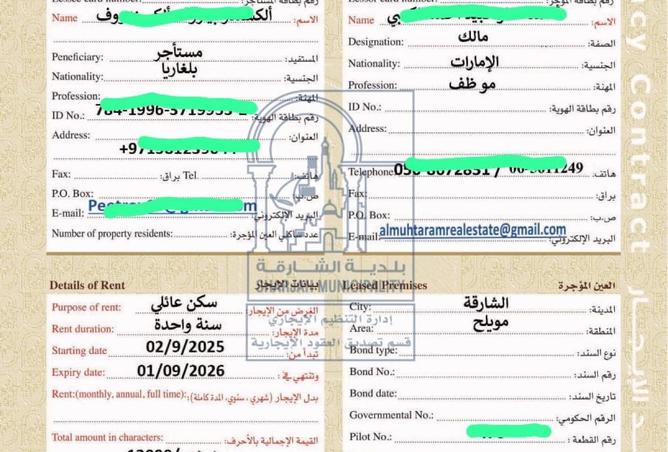 Name الاسم:
Peneficiary: مستأجر المستفيد:
Nationality: بلغاريا الجنسية:
Profession: المهنة:
ID No.: رقم بطاقة الهوية:
Address: العنوان:
Fax: براق: Tel هاتف:
P.O. Box: ص.ب:
E-mail: البريد الإلكتروني:
Number of property residents: عدد ساكني العين المؤجرة:
Name الاسم:
Designation: مالك الصفة:
Nationality: الإمارات الجنسية:
Profession: موظف المهنة:
ID No.: رقم بطاقة الهوية:
Address: العنوان:
Telephone: هاتف:
Fax: براق:
P.O. Box: ص.ب:
E-mail: almuhtaramrealestate@gmail.com البريد الإلكتروني:
بلدية الشارقة
SHARJAH MUNICIPALITY
إدارة التنظيم الإيجاري
قسم تصديق العقود الإيجارية
Details of Rent بيانات الإيجار
Purpose of rent: سكن عائلي الغرض من الإيجار:
Rent duration: سنة واحدة مدة الإيجار:
Starting date 02/9/2025 تبدأ من:
Expiry date: 01/09/2026 وتنتهي في:
Rent:(monthly, annual, full time): بدل الإيجار (شهري ، سنوي، المدة كاملة):
Total amount in characters: القيمة الإجمالية بالأحرف:
Leased Premises العين المؤجرة
City: الشارقة المدينة:
Area: مويلح المنطقة:
Bond type: نوع السند:
Bond No.: رقم السند:
Bond date: تاريخ السند:
Governmental No.: الرقم الحكومي:
Pilot No.: رقم القطعة:
cy Contract